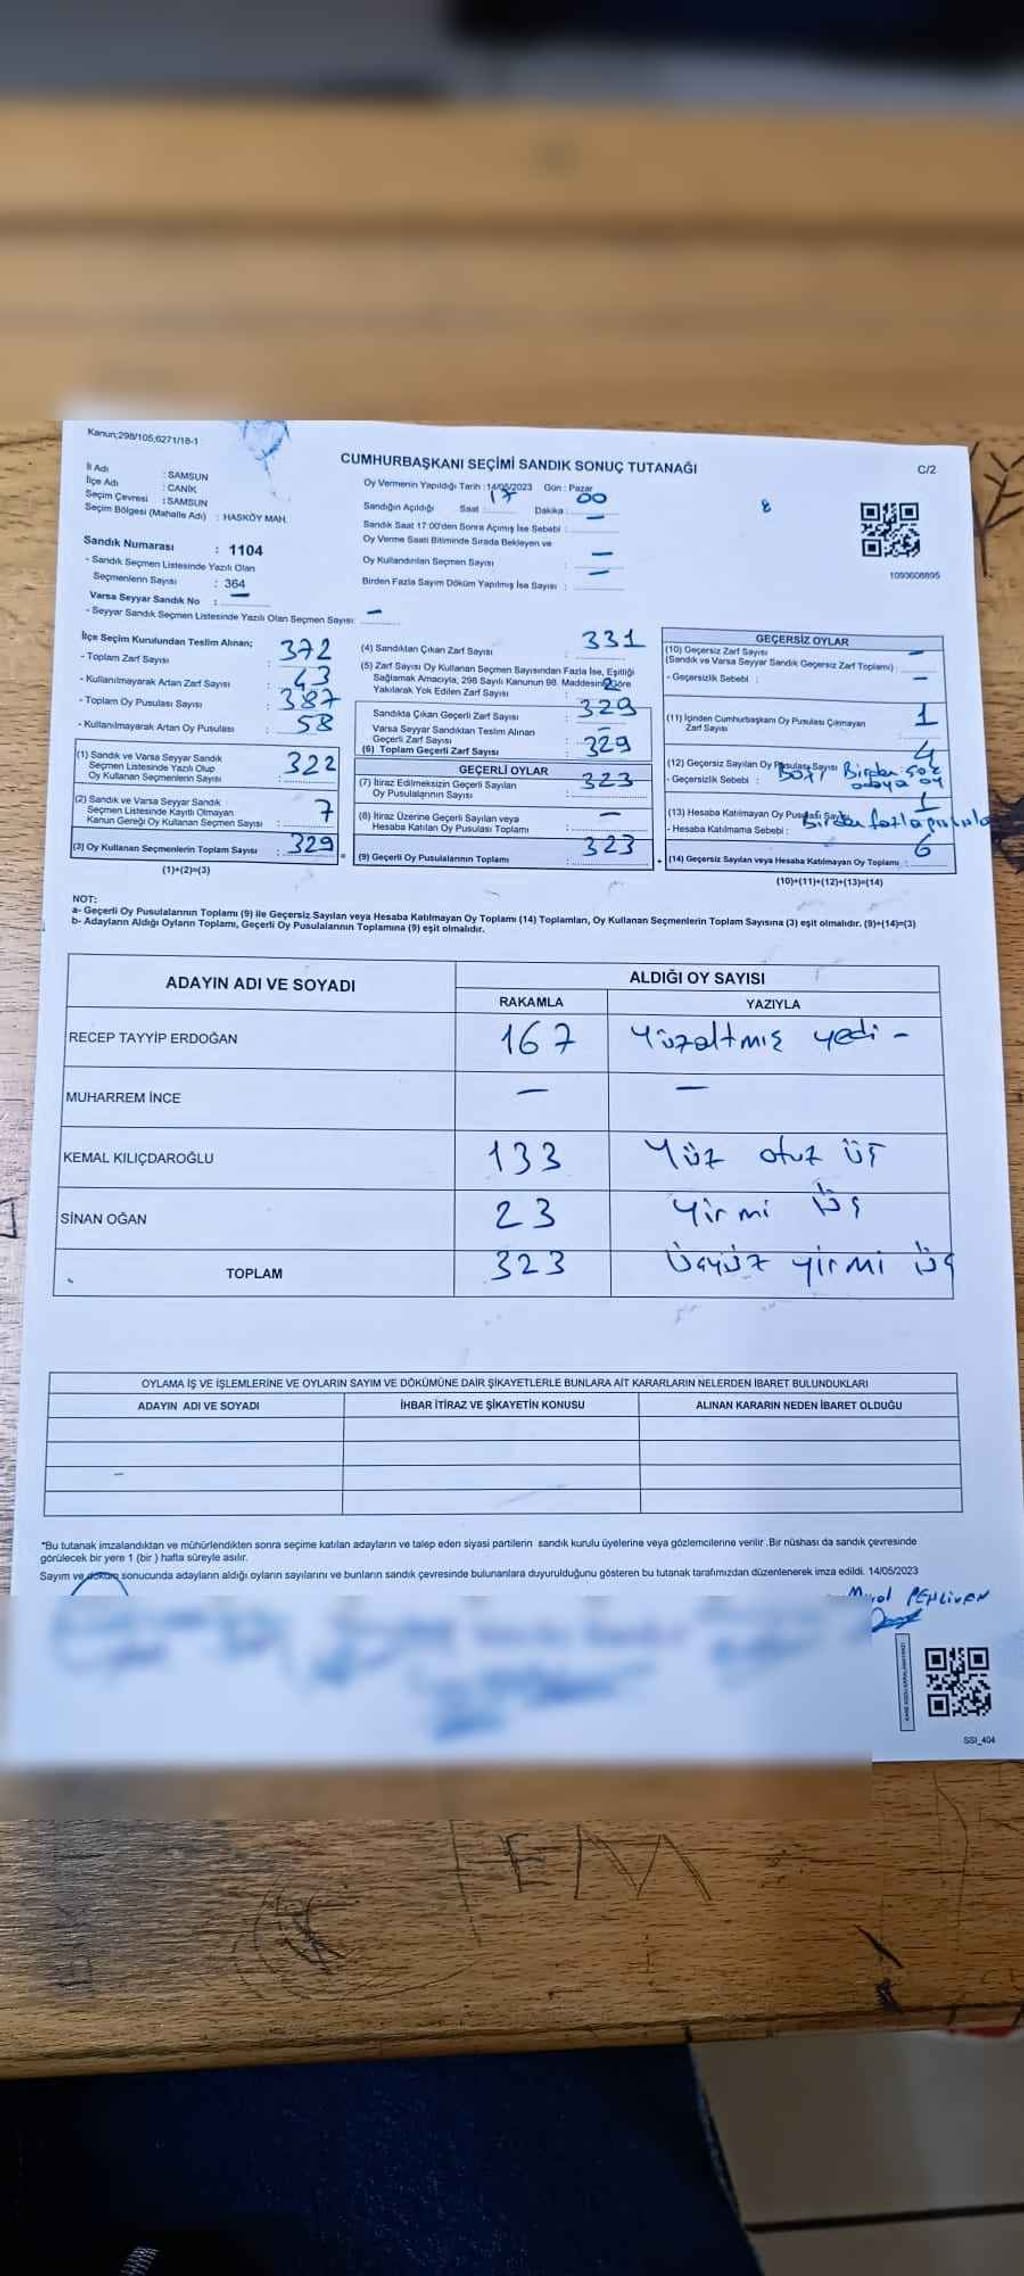 Kanun;298/105,6271/18-1
CUMHURBAŞKANI SEÇİMİ SANDIK SONUÇ TUTANAĞI
C/2
İl Adı : SAMSUN
İlçe Adı : CANİK
Seçim Çevresi : SAMSUN
Seçim Bölgesi (Mahalle Adı) : HASKÖY MAH.
Sandık Numarası : 1104
- Sandık Seçmen Listesinde Yazılı Olan
Seçmenlerin Sayısı : 364
Varsa Seyyar Sandık No : —
- Seyyar Sandık Seçmen Listesinde Yazılı Olan Seçmen Sayısı: —
Oy Vermenin Yapıldığı Tarih : 14/05/2023 Gün : Pazar
Sandığın Açıldığı Saat 17 Dakika 00
Sandık Saat 17:00'den Sonra Açılmış İse Sebebi : —
Oy Verme Saati Bitiminde Sırada Bekleyen ve
Oy Kullandırılan Seçmen Sayısı : —
Birden Fazla Sayım Döküm Yapılmış İse Sayısı : —
8
1093608895
İlçe Seçim Kurulundan Teslim Alınan;
- Toplam Zarf Sayısı : 372
- Kullanılmayarak Artan Zarf Sayısı : 43
- Toplam Oy Pusulası Sayısı : 387
- Kullanılmayarak Artan Oy Pusulası : 58
(1) Sandık ve Varsa Seyyar Sandık
Seçmen Listesinde Yazılı Olup
Oy Kullanan Seçmenlerin Sayısı : 322
(2) Sandık ve Varsa Seyyar Sandık
Seçmen Listesinde Kayıtlı Olmayan
Kanun Gereği Oy Kullanan Seçmen Sayısı : 7
(3) Oy Kullanan Seçmenlerin Toplam Sayısı : 329
(1)+(2)=(3)
(4) Sandıktan Çıkan Zarf Sayısı : 331
(5) Zarf Sayısı Oy Kullanan Seçmen Sayısından Fazla İse, Eşitliği
Sağlamak Amacıyla, 298 Sayılı Kanunun 98. Maddesine Göre
Yakılarak Yok Edilen Zarf Sayısı : 2
Sandıkta Çıkan Geçerli Zarf Sayısı : 329
Varsa Seyyar Sandıktan Teslim Alınan
Geçerli Zarf Sayısı : —
(6) Toplam Geçerli Zarf Sayısı : 329
GEÇERLİ OYLAR
(7) İtiraz Edilmeksizin Geçerli Sayılan
Oy Pusulalarının Sayısı : 323
(8) İtiraz Üzerine Geçerli Sayılan veya
Hesaba Katılan Oy Pusulası Toplamı : —
(9) Geçerli Oy Pusulalarının Toplamı : 323
GEÇERSİZ OYLAR
(10) Geçersiz Zarf Sayısı
(Sandık ve Varsa Seyyar Sandık Geçersiz Zarf Toplamı) : —
- Geçersizlik Sebebi : —
(11) İçinden Cumhurbaşkanı Oy Pusulası Çıkmayan
Zarf Sayısı : 1
(12) Geçersiz Sayılan Oy Pusulası Sayısı : 4
- Geçersizlik Sebebi : Boş, Birden çok
adaya oy
(13) Hesaba Katılmayan Oy Pusulası Sayısı : 1
- Hesaba Katılmama Sebebi : Birden fazla pusula
(14) Geçersiz Sayılan veya Hesaba Katılmayan Oy Toplamı : 6
(10)+(11)+(12)+(13)=(14)
NOT:
a- Geçerli Oy Pusulalarının Toplamı (9) ile Geçersiz Sayılan veya Hesaba Katılmayan Oy Toplamı (14) Toplamları, Oy Kullanan Seçmenlerin Toplam Sayısına (3) eşit olmalıdır. (9)+(14)=(3)
b- Adayların Aldığı Oyların Toplamı, Geçerli Oy Pusulalarının Toplamına (9) eşit olmalıdır.
ADAYIN ADI VE SOYADI ALDIĞI OY SAYISI
RAKAMLA YAZIYLA
RECEP TAYYİP ERDOĞAN 167 Yüzaltmış yedi -
MUHARREM İNCE — —
KEMAL KILIÇDAROĞLU 133 Yüz otuz üç
SİNAN OĞAN 23 Yirmi üç
TOPLAM 323 Üçyüz yirmi üç
OYLAMA İŞ VE İŞLEMLERİNE VE OYLARIN SAYIM VE DÖKÜMÜNE DAİR ŞİKAYETLERLE BUNLARA AİT KARARLARIN NELERDEN İBARET BULUNDUKLARI
ADAYIN ADI VE SOYADI İHBAR İTİRAZ VE ŞİKAYETİN KONUSU ALINAN KARARIN NEDEN İBARET OLDUĞU
*Bu tutanak imzalandıktan ve mühürlendikten sonra seçime katılan adayların ve talep eden siyasi partilerin sandık kurulu üyelerine veya gözlemcilerine verilir. Bir nüshası da sandık çevresinde
görülecek bir yere 1 (bir) hafta süreyle asılır.
Sayım ve döküm sonucunda adayların aldığı oyların sayılarını ve bunların sandık çevresinde bulunanlara duyurulduğunu gösteren bu tutanak tarafımızdan düzenlenerek imza edildi. 14/05/2023
PEHLİVAN
SSI_404
HEM